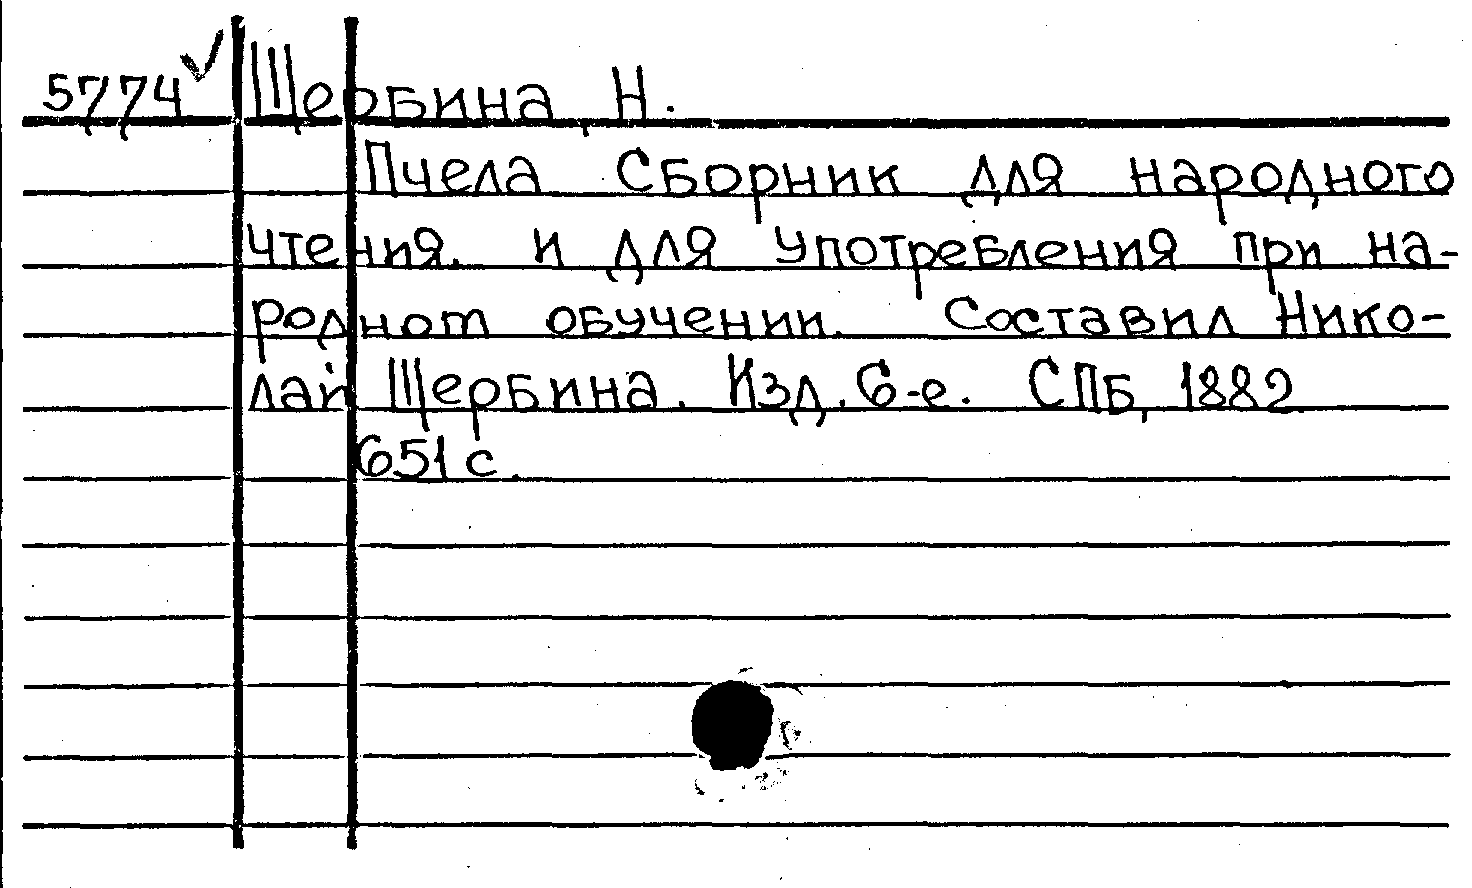 5774 Щербина, Н.
Пчела Сборник для народного
чтения. и для употребления при на-
родном обучении. Составил Нико-
лай Щербина. Изд. 6-е. СПБ, 1882
651 с.